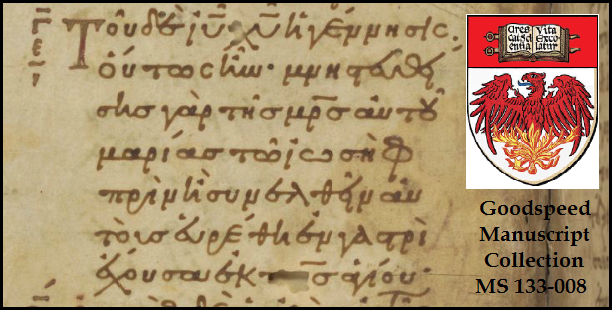 Γ
Ε
Ι
Τοῦ δὲ ι̅υ̅ χ̅υ̅ ἡ γέννησις.
οὕτως ἦν· μνηστευθεί
σης γὰρ τῆς μ̅ρ̅ς̅ αὐτοῦ
μαρίας τῶ ἰωσὴφ
πρὶν ἢ συνελθεῖν αὐ
τοὺς εὑρέθη ἐν γαστρὶ
ἔχουσα ἐκ ἁγίου·
Cres Vita
cat Sci Exco
entia latur
Goodspeed
Manuscript
Collection
MS 133-008